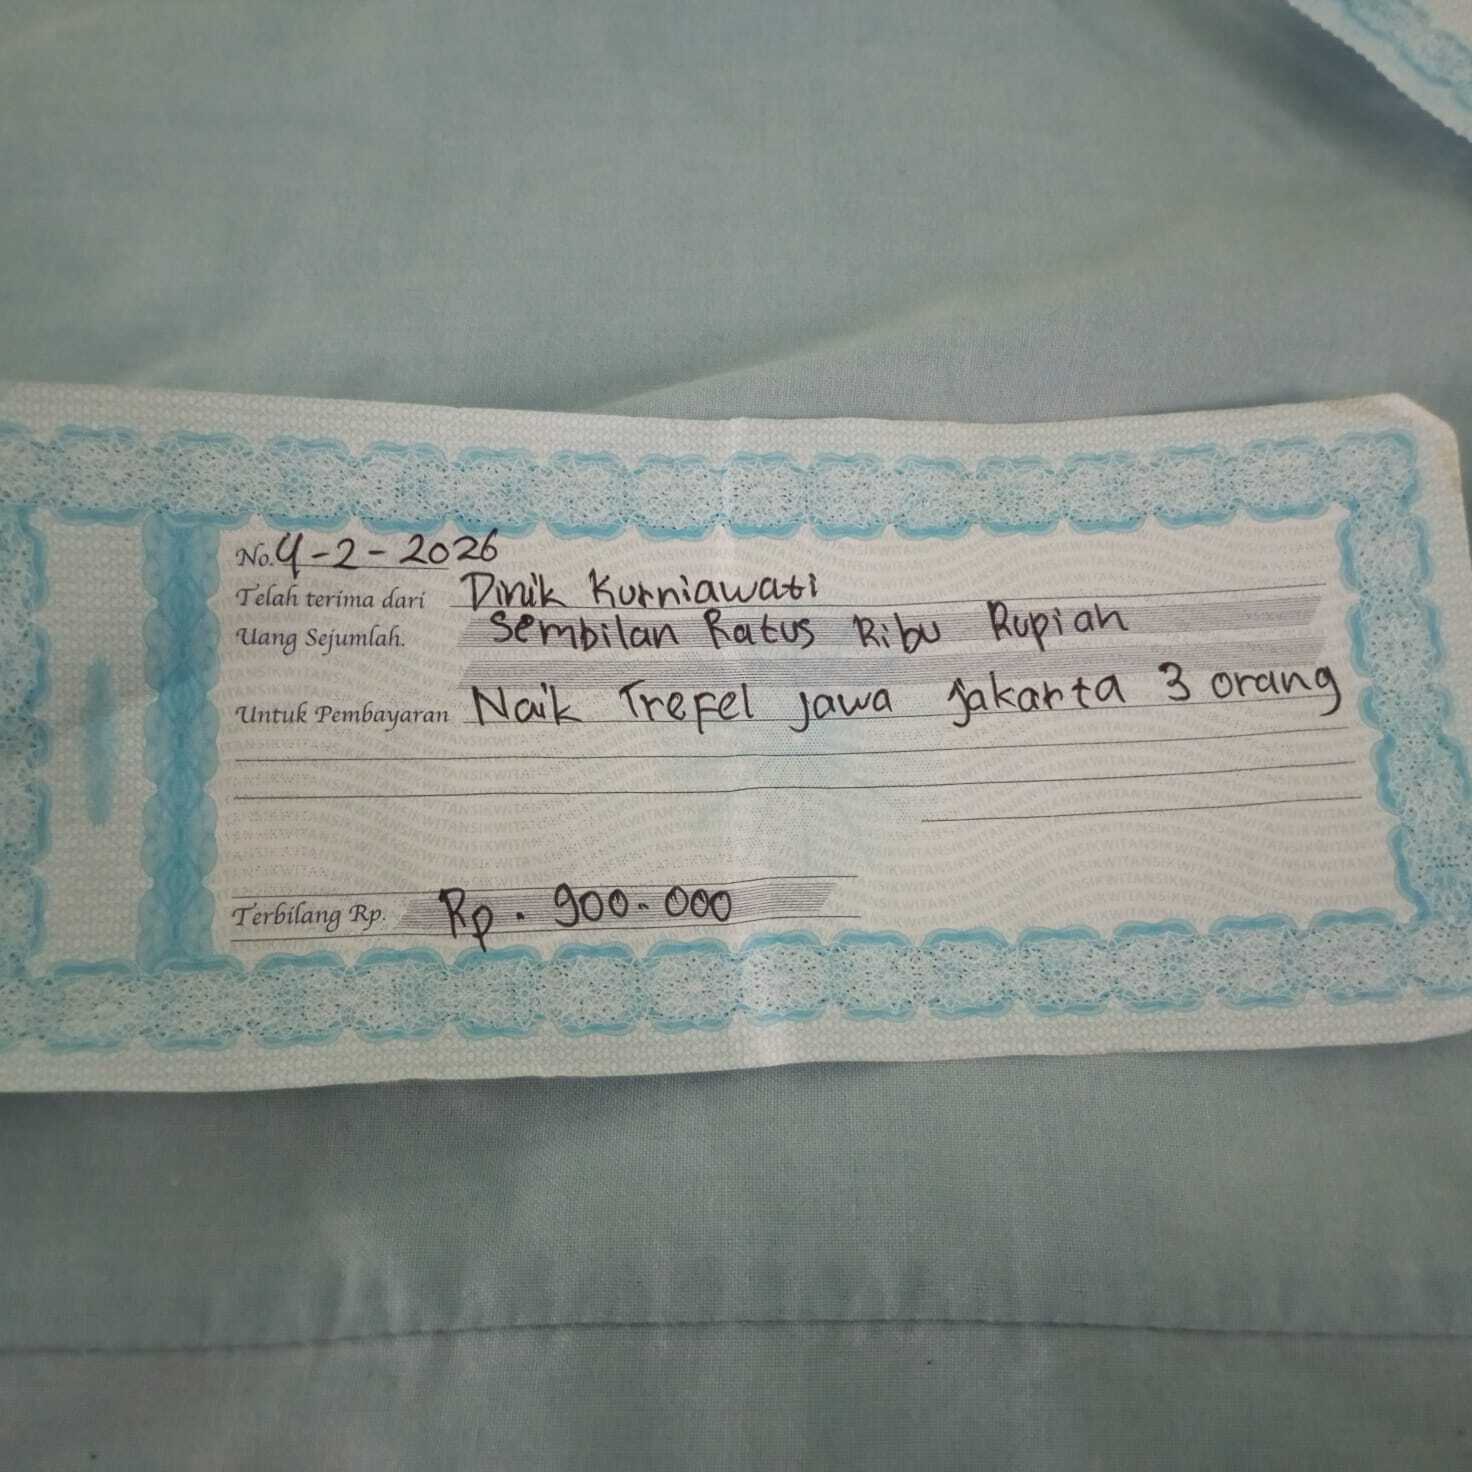 No. 4-2-2026
Telah terima dari Dinik Kurniawati
Uang Sejumlah. Sembilan Ratus Ribu Rupiah
Untuk Pembayaran Naik Trefel Jawa Jakarta 3 orang
Terbilang Rp. Rp. 900.000